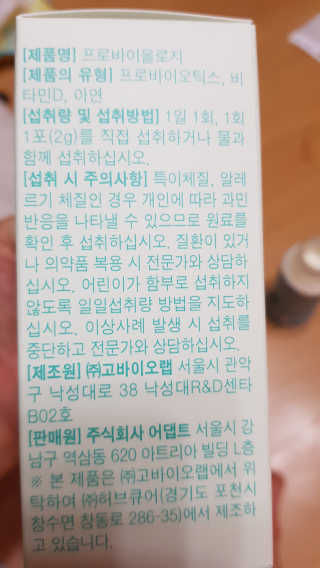 [제품명] 프로바이올로지
[제품의 유형] 프로바이오틱스, 비
타민D, 아연
[섭취량 및 섭취방법] 1일 1회, 1회
1포(2g)를 직접 섭취하거나 물과
함께 섭취하십시오.
[섭취 시 주의사항] 특이체질, 알레
르기 체질인 경우 개인에 따라 과민
반응을 나타낼 수 있으므로 원료를
확인 후 섭취하십시오. 질환이 있거
나 의약품 복용 시 전문가와 상담하
십시오. 어린이가 함부로 섭취하지
않도록 일일섭취량 방법을 지도하
십시오. 이상사례 발생 시 섭취를
중단하고 전문가와 상담하십시오.
[제조원] ㈜고바이오랩 서울시 관악
구 낙성대로 38 낙성대R&D센타
B02호
[판매원] 주식회사 어댑트 서울시 강
남구 역삼동 620 아트리아 빌딩 L층
※ 본 제품은 ㈜고바이오랩에서 위
탁하여 ㈜허브큐어(경기도 포천시
창수면 창동로 286-35)에서 제조하
고 있습니다.